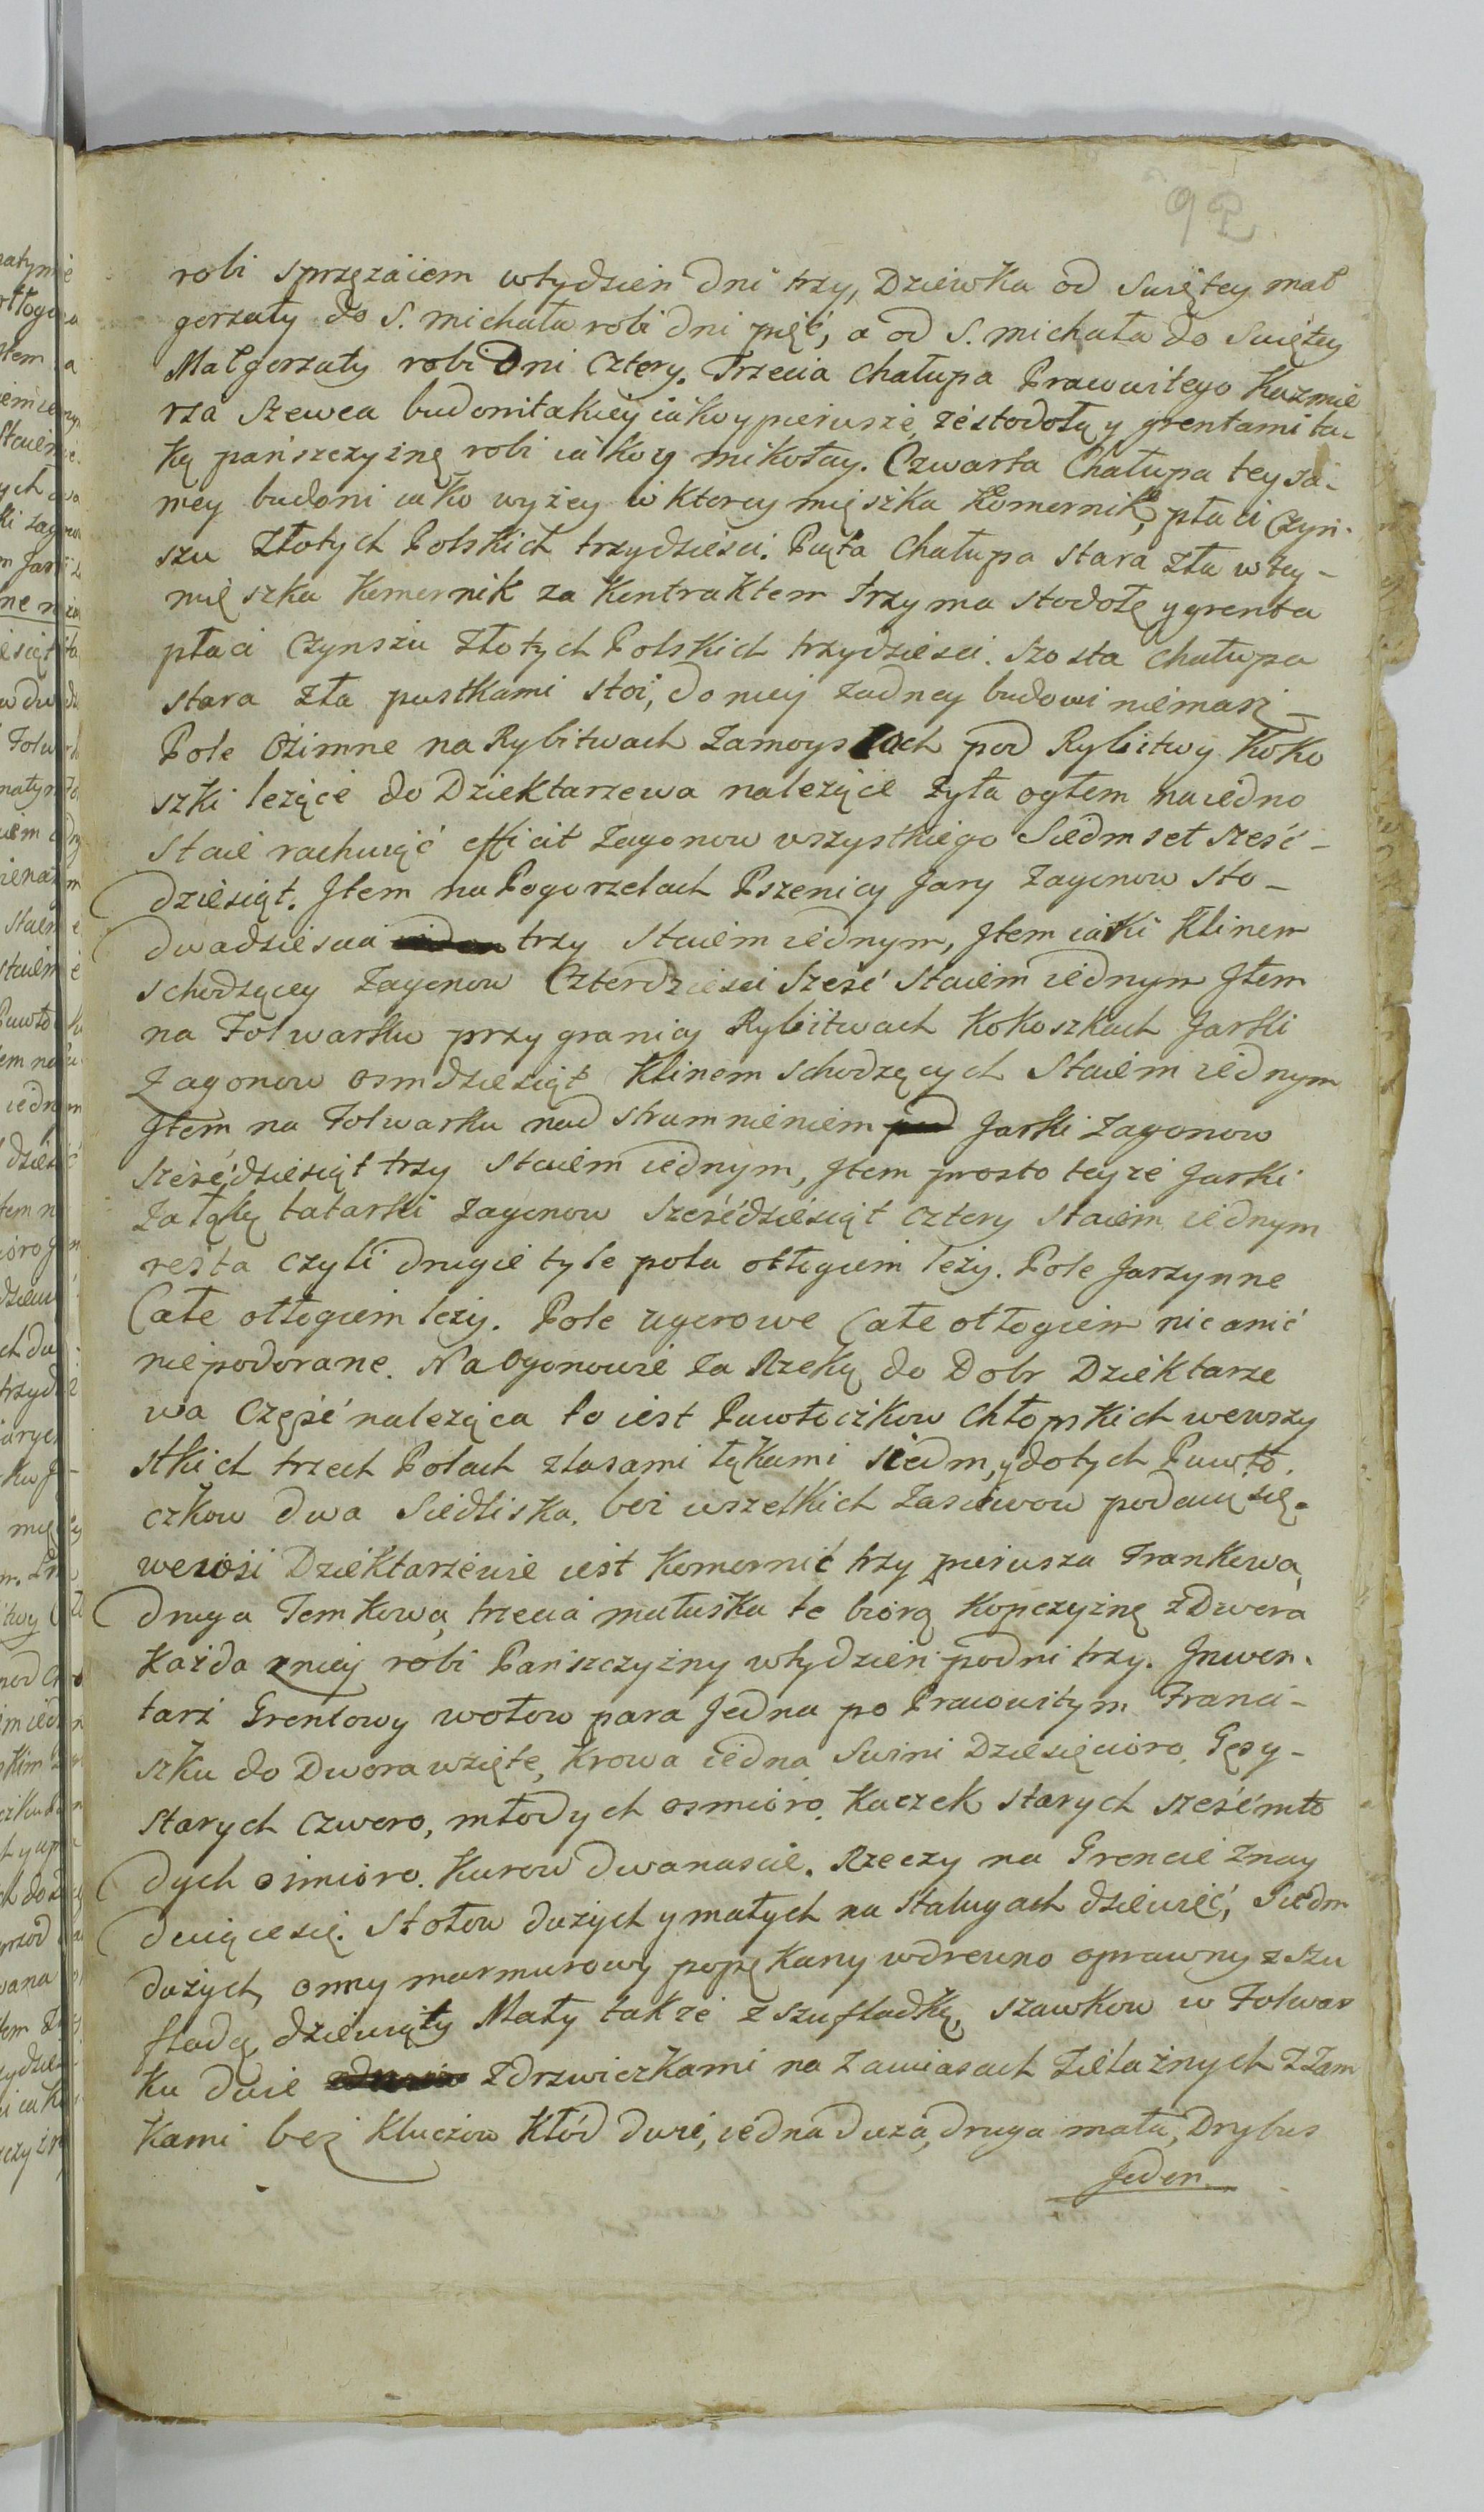 92
robi sprzęzáiem wtydzień dni trzy, Dziewka od Swiętey mał
gorzaty do S. michała robi dni pięć, a od S. michała do Swiętey
Małgorzaty robi Dni Cztery. Trzecia Chałupa Prawowitego Kazmie
rza Szewca budoni takiey iako y pierwsze, ze stodołą y grentami ta-
ką pańszczyznę robi iako y mikołay. Czwarta Chałupa tey sa-
mey budoni iako wyżey w ktorey mięszka Komornik, płaci Czyn-
szu Złotych Polskich trzydziesci. Piąta Chałupa stara zła w tey-
mięszka Komornik za Kontraktem trzyma stodołę y grenta
płaci Czynszu Złotych Polskich trzydziesci. Szosta chałupa
stara zła pustkami stoi, do niey żadney budowi niemasz_
Pole Ozimne na Rybitwach Zamoyskich pod Rybitwy Koko
szki lezące do Dziektarzewa nalezące żyta ogłem na iedno
Staie rachuiąć efficit Zagonow wszystkiego Siedmset sześć-
dziesiąt. Jtem na Pogorzelach Pszenicy Jary Zagonow Sto-
dwadziescia trzy Staiem iednym, Jtem iarki Klinem
schodzącey Zagonow Czterdziesci Sześć Staiem iednym Jtem
na Folwarku przy granicy Rybitwach Kokoszkach Jarki
Zagonow osmdziesiąt Klinem schodzących Staiem iednym
Jtem na Folwarku nad strumnieniem pod Jarki Zagonow
sześćdziesiąt trzy Staiem iednym, Jtem prosto teyze Jarki
Za łąką tatarki zagonow sześćdziesiąt cztery staiem iednym
reszta czyli drugie tyle pola odłogiem leży. Pole Jarzynne
Całe otłogiem leży. Pole ugorowe Całe otłogiem nic anić
niepodorane. Na Ogonowie za Rzeką do Dobr Dziektarze
wa Część nalezącą to iest Pawłoczkow Chłopskich wewszy
stkich trzech Polach zlasami łąkami siedm, y dotych Pawło-
czkow dwa Siedliska. bez wszelkich Zasiewow podaią się.
we wsi Dziektarzewie iest Komornić trzy pierwsza Frankowa,
druga Temkowa, trzecia matuska te biorą Kopczyznę z Dwora
Każda z niey robi Pańszczyzny wtydzień podni trzy. Jnwen-
tarz Grentowy wołow para Jedna po Prawowitym Franci-
szku do Dwora wzięte, Krowa iedna Swini Dziesięcioro, Gęsy-
Starych czworo, młodych osmioro. Kaczek starych sześć mło
dych osmioro. Kurow dwanascie. Rzeczy na Grencie Znay
duiące się. Stołow duzych y małych na Stalugach dziewięć, Siedm
dużych, osmy marmurowy popękany w drewno oprawny z szu
fladą, dziewiąty Mały także z szufladką, szawkow w Folwar
ku dwie z drzwiczkami na zawiasach żelaznych z Zam
kami bez Kluczow Kłód dwie, iedna duza, druga mała, Drybus
Jeden